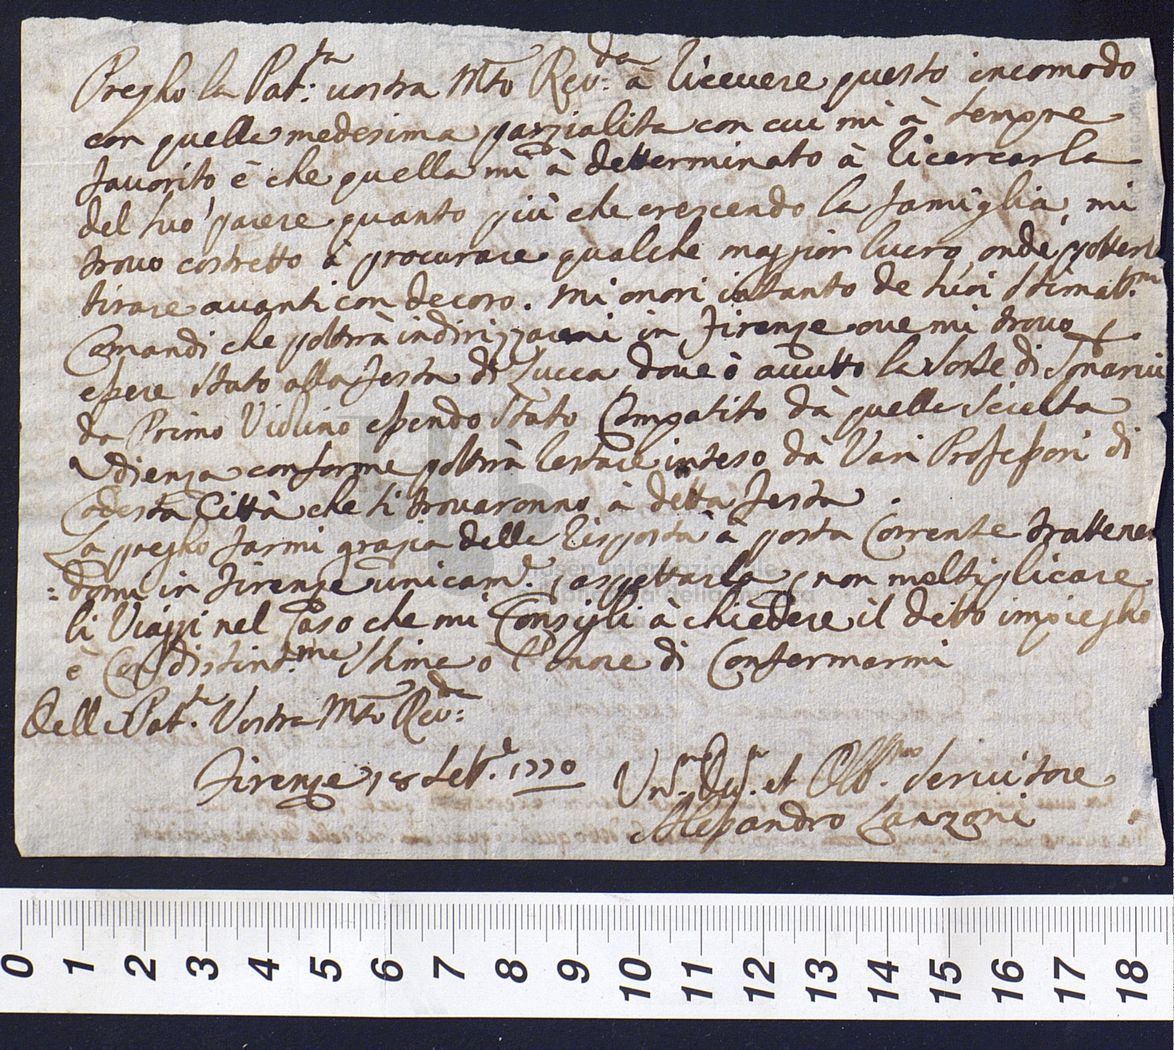 Pregho la Pat:ta vostra Mto Rev:da à ricevere questo incomodo
con quella medesima parzialita con cui mi à sempre
favorito è che quella mi à detterminato à ricercarla
del suo parere quanto più che crescendo la famiglia, mi
trovo costretto à procurare qualche maggior lucro, onde potter
tirare avanti con decoro. Mi onori intanto de suoi stimatt:mi
Comandi che pottrà indirizzarmi in Firenze ove mi trovo
essere stato alla festa di Lucca dove ò avutto la sorte di
da Primo Violino essendo stato Compatito dà quella scielta
Udienza conforme pottrà restare inteso dà Vari Professori di
Codesta Città che si trovaronno à detta festa.
La pregho farmi grazia della risposta à posta Corrente trattenen
=domi in Firenze unicam:e p aspettarla, p non moltiplicare
li Viaggi nel Caso che mi Consigli à chiedere il detto impiegho
è Con distint:ma stima ò l'onore di Confermarmi
Della Pat:tà Vostra Mto Rev:da
Firenze 18 Sett:e 1770
Um:mo Dev: et Obb:mo Servitore
Alessandro Lanzoni
museo internazionale
e biblioteca della musica
0 1 2 3 4 5 6 7 8 9 10 11 12 13 14 15 16 17 18